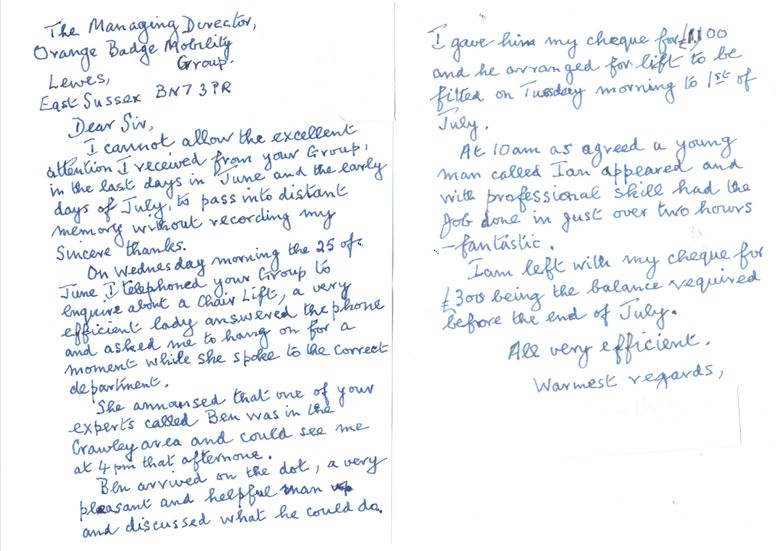 The Managing Director,
Orange Badge Mobility
Group.
Lewes,
East Sussex BN7 3PR
Dear Sir,
I cannot allow the excellent
attention I received from your Group,
in the last days in June and the early
days of July, to pass into distant
memory without recording my
Sincere thanks.
On Wednesday morning the 25 of
June I telephoned your Group to
enquire about a Chair Lift, a very
efficient lady answered the phone
and asked me to hang on for a
moment while she spoke to the correct
department.
She announsed that one of your
experts called Ben was in the
Crawley area and could see me
at 4 pm that afternone.
Ben arrived on the dot, a very
pleasant and helpful man
and discussed what he could do.
I gave him my cheque for £1,100
and he arranged for lift to be
fitted on Tuesday morning to 1st of
July.
At 10am as agreed a young
man called Ian appeared and
with professional skill had the
Job done in just over two hours
- fantastic.
I am left with my cheque for
£300 being the balance required
before the end of July.
All very efficient.
Warmest regards,